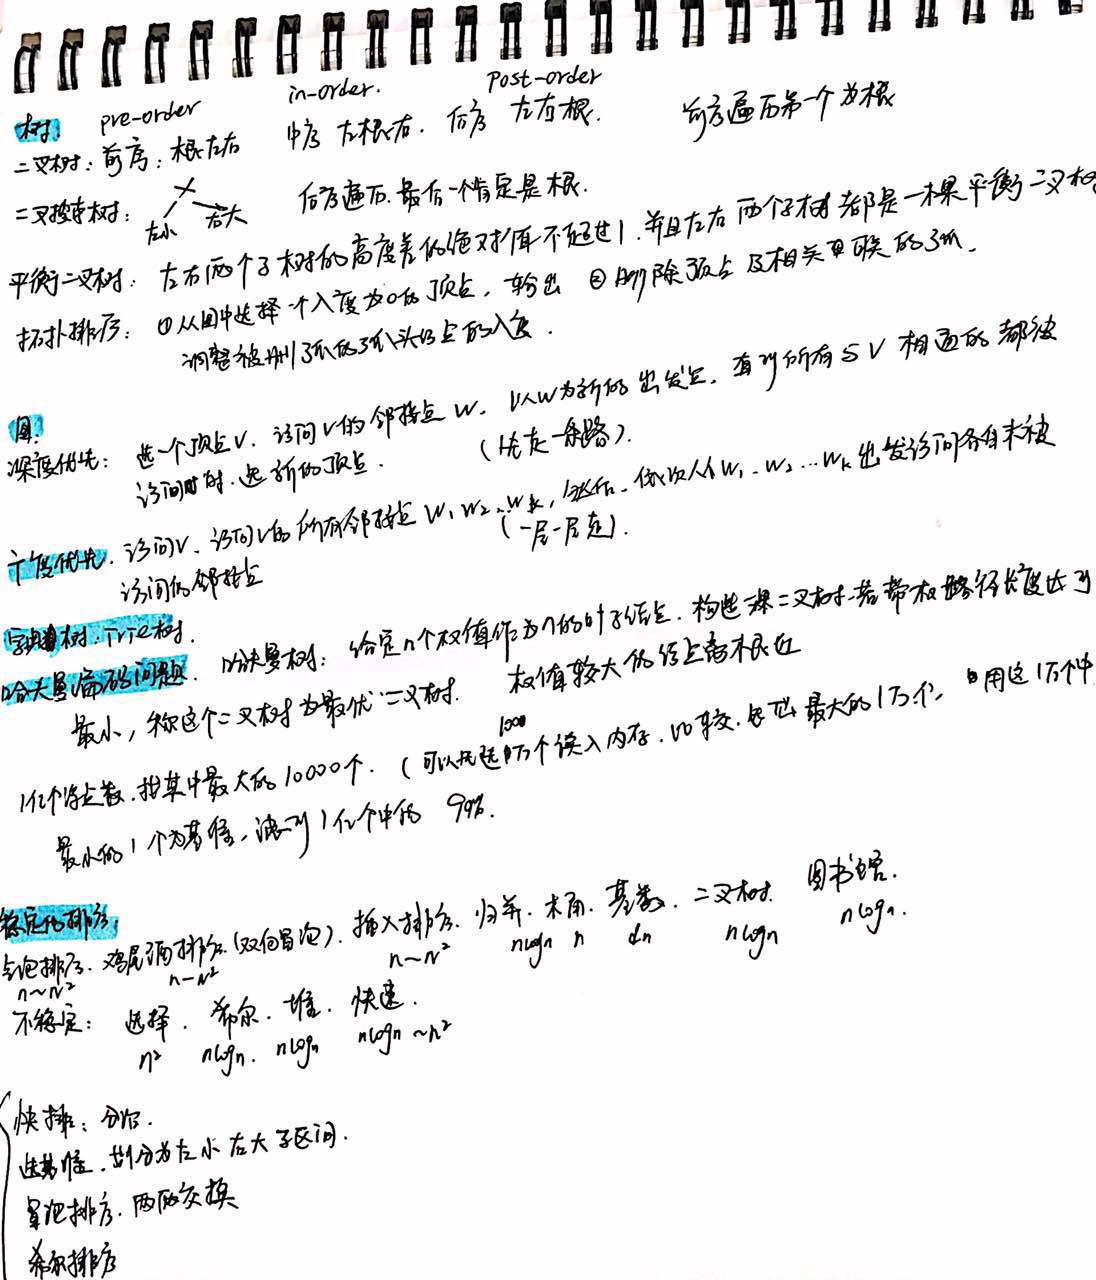 pre-order in-order. post-order
树:
二叉树: 前序: 根左右 中序 左根右. 后序 左右根. 前序遍历第一个为根
二叉搜索树: 左小 右大 后序遍历.最后一个肯定是根.
平衡二叉树: 左右两个子树的高度差的绝对值不超过1.并且左右两个子树都是一棵平衡二叉树
拓扑排序: ①从图中选择一个入度为0的顶点,输出 ②删除顶点及相关联的弧.
调整被删弧的弧头结点的入度.
图:
深度优先: 选一个顶点V.访问V的邻接点W.从W为新的出发点.直到所有与V相通的都被
访问时.选新的顶点. (先走一条路).
广度优先.访问V.访问V的所有邻接点W₁W₂..Wk,然后.依次从W₁.W₂...Wk出发访问各自未被
访问的邻接点 (一层一层走).
字典树.Trie树.
哈夫曼编码问题. 哈夫曼树: 给定n个权值作为n的叶子结点.构造一课二叉树.若带权路径长度达到
最小,称这个二叉树为最优二叉树. 权值较大的结点离根近
1000
1亿个浮点数.找其中最大的10000个.(可以先选万个读入内存.比较.最大的1万个,用这1万个中
最小的1个为基准,1亿个中的99%.
稳定的排序,
冒泡排序.鸡尾酒排序(双向冒泡).插入排序.归并.桶.基数.二叉树. 图书馆.
n~N² n-N² n~N² nlogn n dn nlogn nlogn.
不稳定: 选择.希尔.堆.快速.
n² nlogn. nlogn nlogn~n²
快排: 分治.
选基准.划分为左小右大子区间.
冒泡排序.两两交换
希尔排序